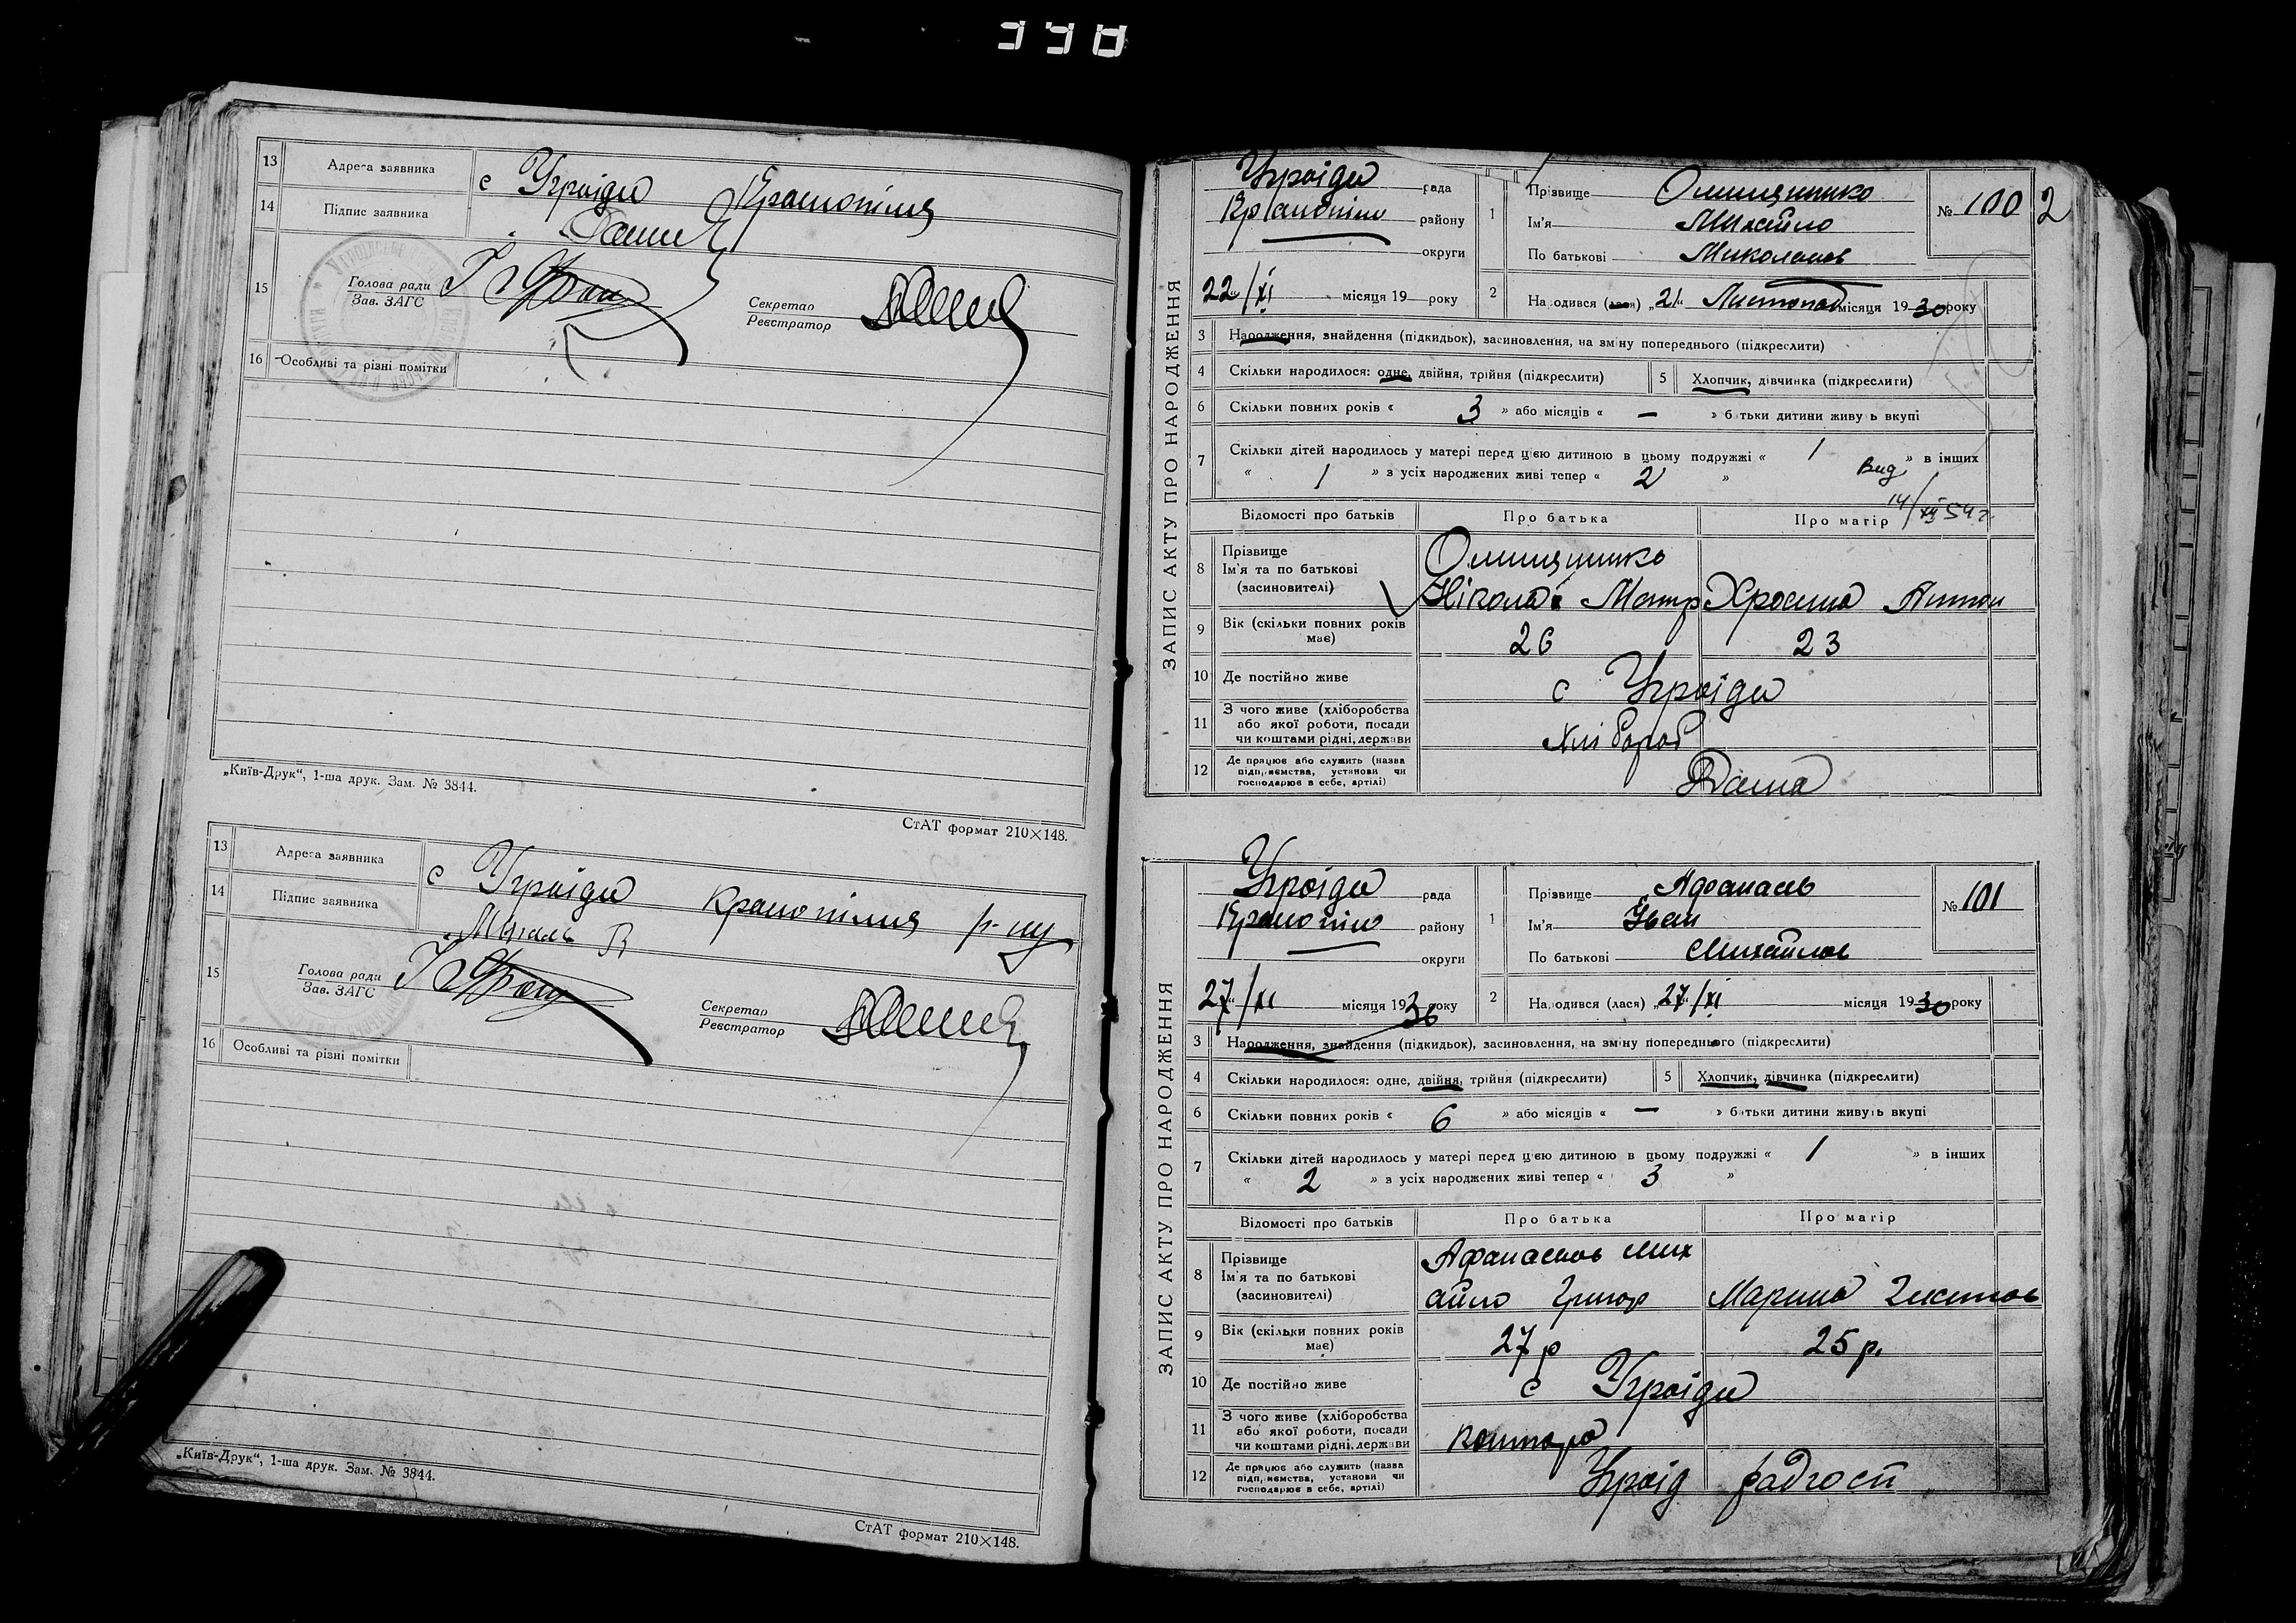 338
13 Адреса заявника с Угроіди Краснопілля
14 Підпис заявника
15 Голова ради
Зав. ЗАГС
Секретар
Реєстратор
16 Особливі та різні помітки
„Київ-Друк“, 1-ша друк. Зам. № 3844.
СтАТ формат 210×148.
13 Адреса заявника с Угроіди Краснопілля р-ну
14 Підпис заявника
15 Голова ради
Зав. ЗАГС
Секретар
Реєстратор
16 Особливі та різні помітки
„Київ-Друк“, 1-ша друк. Зам. № 3844.
СтАТ формат 210×148.
ЗАПИС АКТУ ПРО НАРОДЖЕННЯ
Угроіди рада
Краснопіл району
округи
22/XI місяця 19 року
1 Прізвище
Ім'я Михайло
По батькові Миколаєв
№ 100 2
2 Народився (лася) „21“ Листопад місяця 1930 року
3 Народження, знайдення (підкидьок), засиновлення, на зміну попереднього (підкреслити)
4 Скільки народилося: одне, двійня, трійня (підкреслити) 5 Хлопчик, дівчинка (підкреслити)
6 Скільки повних років « 3 » або місяців « — » батьки дитини живуть вкупі
7 Скільки дітей народилось у матері перед цією дитиною в цьому подружжі « 1 » в інших
« 1 » з усіх народжених живі тепер « 2 »
Вид
14/XII 54 г.
Відомості про батьків Про батька Про матір
8 Прізвище
Ім'я та по батькові
(засиновителі) Ніколай Митр Хросина Антон
9 Вік (скільки повних років має) 26 23
10 Де постійно живе с Угроіди
11 З чого живе (хліборобства
або якої роботи, посади
чи коштами рідні, держави Хлібороб
12 Де працює або служить (назва
підприємства, установи чи
господарює в себе, артілі) Дома
ЗАПИС АКТУ ПРО НАРОДЖЕННЯ
Угроіди рада
Краснопіл району
округи
27/XI місяця 1930 року
1 Прізвище Афанасьв
Ім'я Іван
По батькові Михайлов
№ 101
2 Народився (лася) „27“/XI місяця 1930 року
3 Народження, знайдення (підкидьок), засиновлення, на зміну попереднього (підкреслити)
4 Скільки народилося: одне, двійня, трійня (підкреслити) 5 Хлопчик, дівчинка (підкреслити)
6 Скільки повних років « 6 » або місяців « — » батьки дитини живуть вкупі
7 Скільки дітей народилось у матері перед цією дитиною в цьому подружжі « 1 » в інших
« 2 » з усіх народжених живі тепер « 3 »
Відомості про батьків Про батька Про матір
8 Прізвище Афанасьов Мих
Ім'я та по батькові
(засиновителі) айло Григор Марина
9 Вік (скільки повних років має) 27 р 25 р.
10 Де постійно живе с Угроіди
11 З чого живе (хліборобства
або якої роботи, посади
чи коштами рідні, держави
12 Де працює або служить (назва
підприємства, установи чи
господарює в себе, артілі) Угроід радгосп